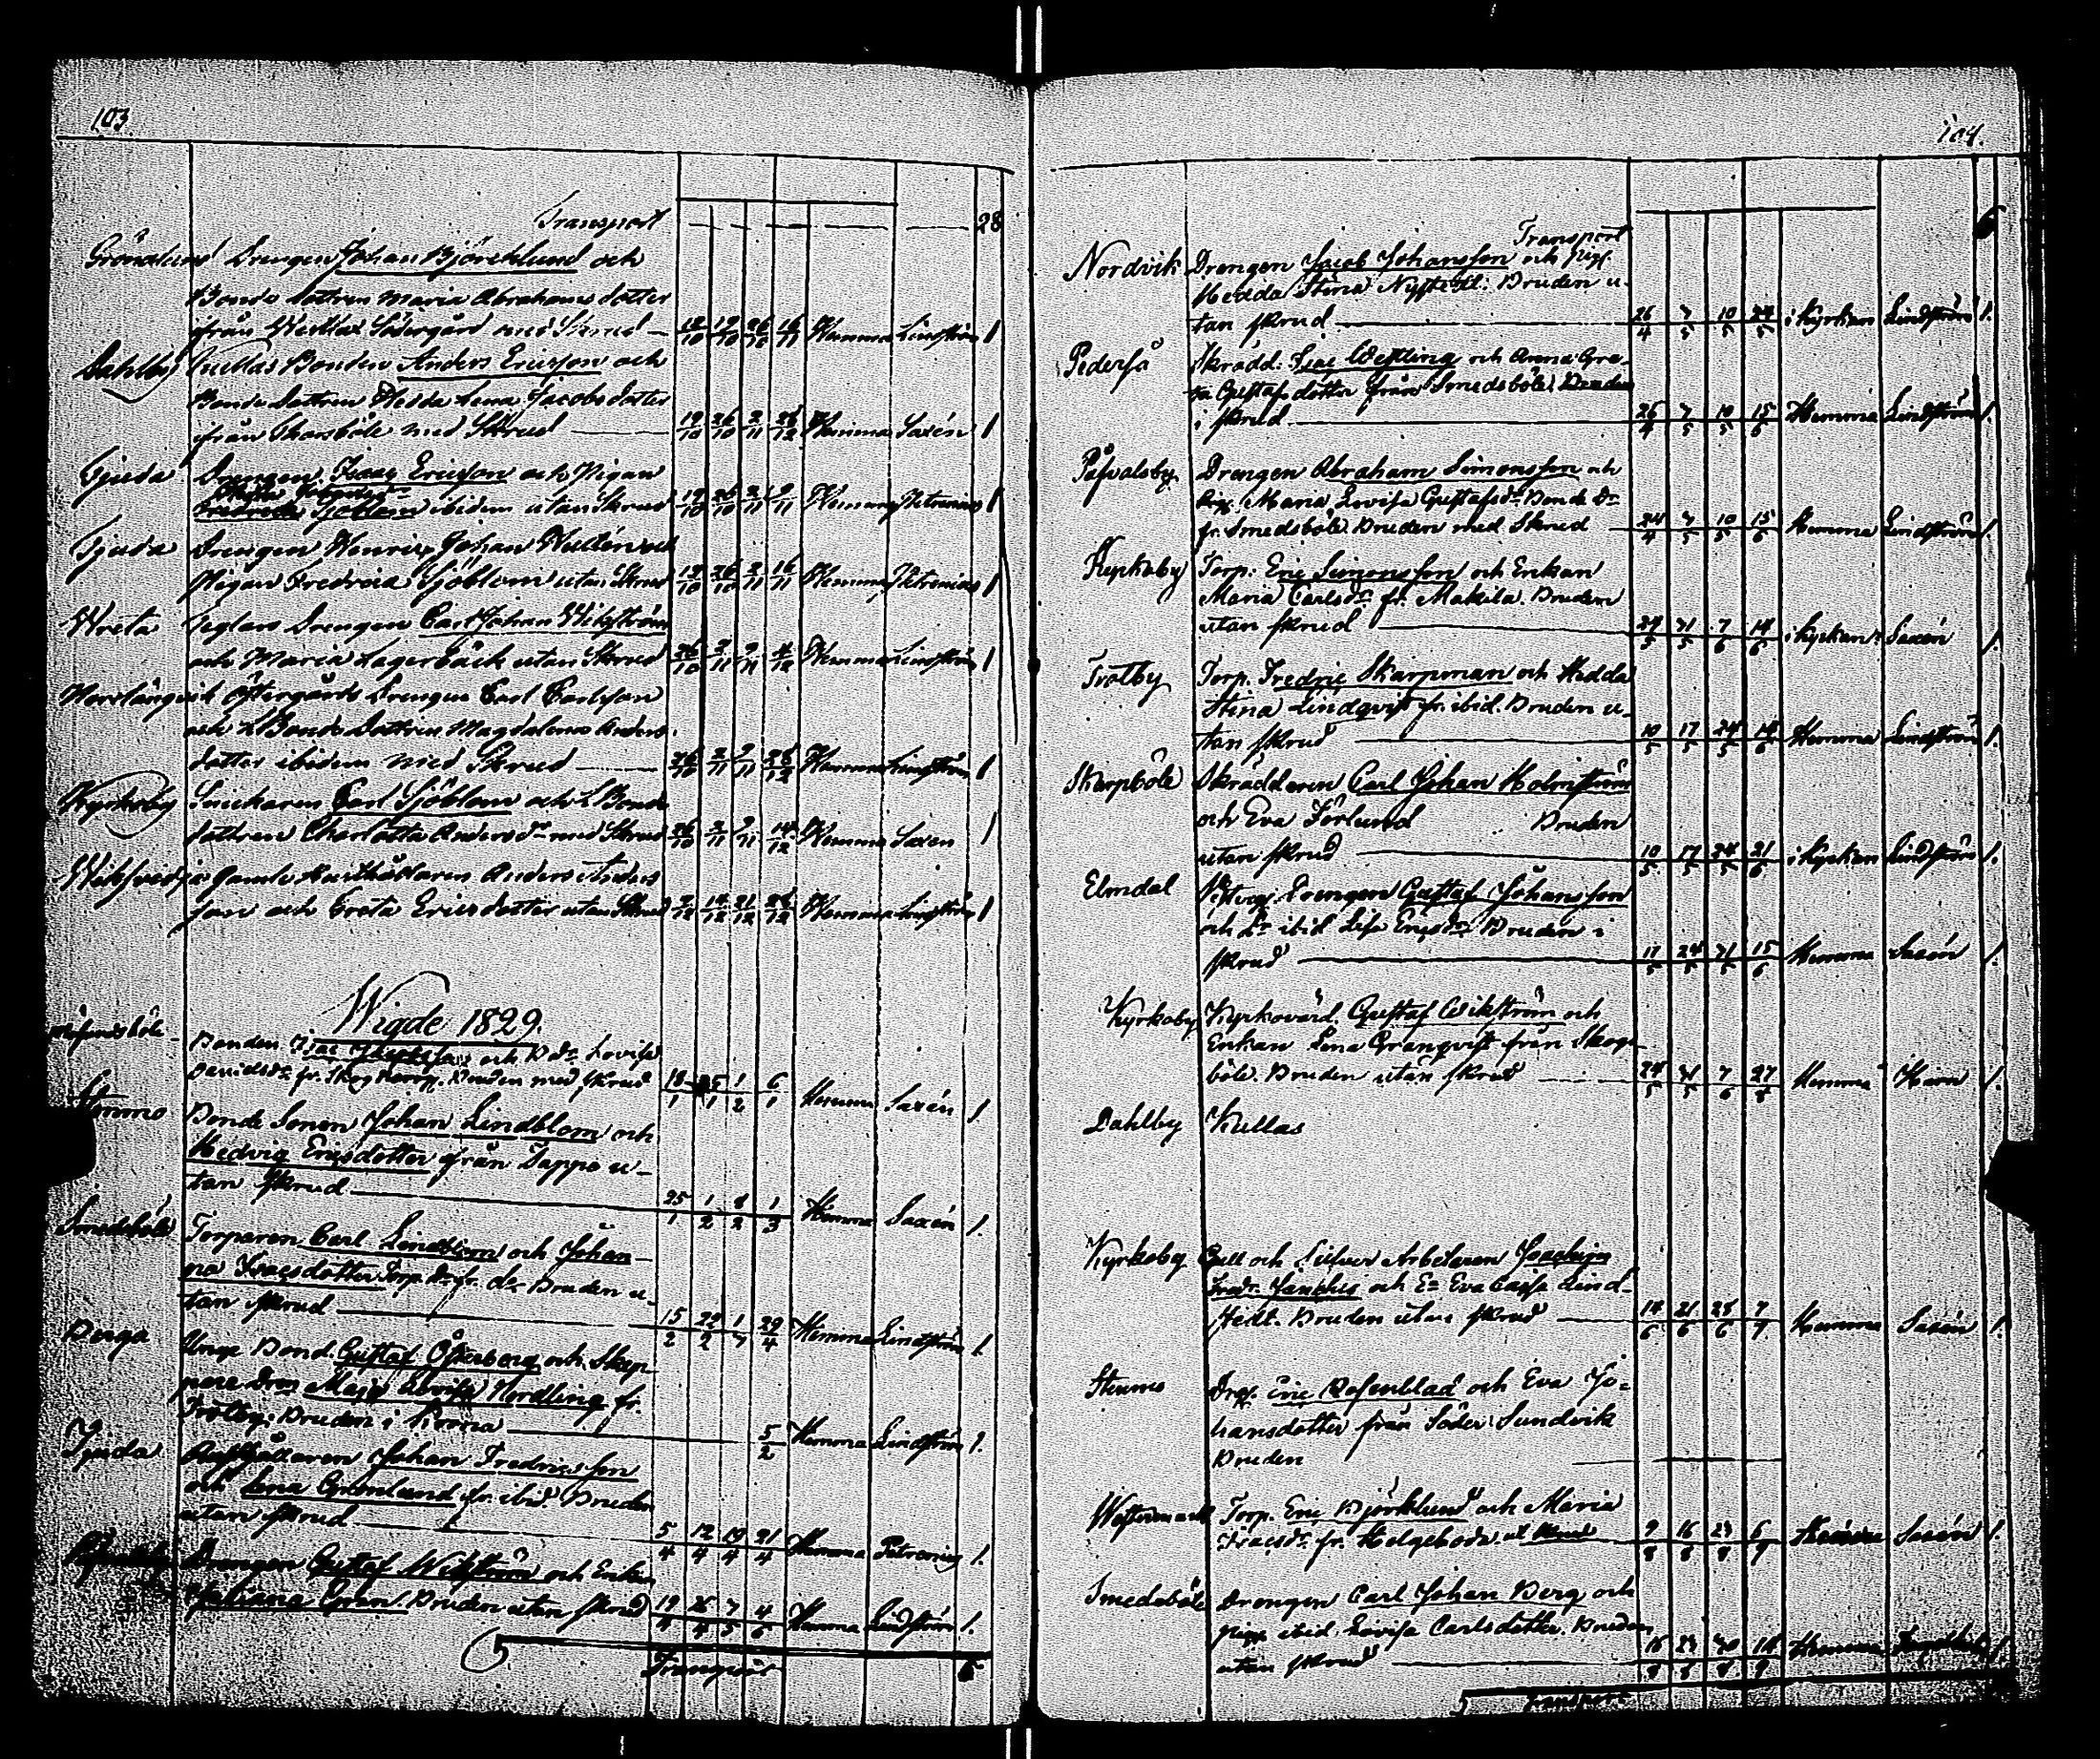 103.
Transport 28
Grönlund Drengen Johan Björcklund och
Bonde dottren Maria Abrahams dotter
ifrån Westlax Södergård med Skrud 12/10 19/10 26/10 16/11 Hemma Lindström 1
Dahlby Kullas Bonden Anders Ericsson och
Bonde dottren Hedda Lena Jacobs dotter
ifrån Thorsböle med Skrud 19/10 26/10 2/11 28/12 Hemma Saxén 1
Tjuda Drengen Isaac Ericsson och Pigan
Sjöblom ibidem utan Skrud 19/10 26/10 2/11 9/11 Hemma Petrenius 1
Tjuda Drengen Henric Johan Hullén och
Pigan Fredrica Sjöblom utan Skrud 19/10 26/10 2/11 16/11 Hemma Petrenius 1
Wreta Teglars Drengen Carl Johan Wikström
och Maria Lagerbäck utan Skrud 26/10 2/11 9/11 4/12 Hemma Lindström 1
Norrlångvik Östergårds Drengen Carl Carlsson
och Bonde Dottren Magdalena Anders
dotter ibidem med Skrud 26/10 2/11 9/11 28/12 Hemma Lindström 1
Kyrkoby Snickaren Carl Sjöblom och Bonde
dottren Charlotta Andersdr med Skrud 26/10 2/11 9/11 14/12 Hemma Saxén 1
Gamle Anders Anders
son och Greta Ericsdotter utan Skrud 14/12 21/12 28/12 Hemma Lindström 1
Wigde 1829.
Bonden Isac och B dr Lovisa
Davidsdr fr. Bruden med skrud 18/1 25/1 1/2 6/1 Hemma Saxén 1.
Stenmo Bonde Sonen Johan Lindblom och
Hedvig Ericsdotter från Tappo u-
tan skrud 25/1 1/2 8/2 1/3 Hemma Saxén 1.
Smedsböle Torparen Carl Lindblom och Johan-
na Isacsdotter Torp. dr fr. do Bruden u-
tan skrud 15/2 22/2 1/3 29/4 Hemma Lindström 1.
Berga Unge Bond. Gustaf Österberg och Skep-
pare Dren Maja Lovisa Nordling fr.
Trotby. Bruden i krona 5/2 Hemma Lindström 1.
Tjuda Johan Fredricsson
och Lena Grönlund fr. ibid. Bruden
utan skrud 5/4 12/4 19/4 21/4 Hemma Petrenius 1.
Drengen Gustaf Wikström och Enkan
Juliana Gran. Bruden utan skrud 19/4 26/4 7/5 4/6 Hemma Lindström 1.
Transport 6
104.
Transport 6
Nordvik Drengen Jacob Johansson och Pig.
Hedda Stina Nystedt: Bruden u-
tan skrud 26/4 7/5 10/5 24/5 i kyrkan Lindström 1.
Pederså Skrädd. Isac Westling och Anna Gre-
ta Gustafsdotter från Smedsböle. Bruden
i skrud 26/4 7/5 10/5 15/6 Hemma Lindström 1.
Påfvalsby Drengen Abraham Simonsson och
Pig. Maria Lovisa Gustafsdr Bonde Dr
fr. Smedsböle Bruden med Skrud 24/4 7/5 10/5 15/6 Hemma Lindström 1.
Repkeby Torp: Eric Simonsson och Enkan
Maria Carlsdr fr. Mattila. Bruden
utan skrud 24/5 31/5 7/6 14/6 i kyrkan Saxén 1.
Trotby Torp. Fredric Skarpman och Hedda
Stina Lindqvist fr. ibid. Bruden u-
tan skrud 10/5 17/5 24/5 14/6 Hemma Lindström 1.
Skarpböle Skräddaren Carl Johan Holmström
och Eva Förlund Bruden
utan skrud 10/5 17/5 24/5 21/6 i kyrkan Lindström 1.
Elmdal Drengen Gustaf Johansson
och Dr ibid Lisa Ericsdr Bruden i
skrud 17/5 24/5 31/5 15/6 Hemma Saxén 1.
Kyrkoby Kyrkovärd. Gustaf Wikström och
Enkan Lena Granqvist från Skogs-
böle. Bruden utan skrud 24/5 31/5 7/6 27/8 Hemma Hörn 1.
Dahlby Kullas
Kyrkoby Gull och Silfver Arbetaren Joachim
Fredr. och Er Eva Caisa Lind-
stedt. Bruden utan skrud 14/6 21/6 28/6 7/7 Hemma Saxén 1.
Stenmo Drg. Eric Rosenblad och Eva Jo-
hansdotter från Söder Sundvik
Bruden
Westermark Torp. Eric Björklund och Maria
Isacsdr fr. Helgeboda. ut. skrud 9/8 16/8 23/8 6/9 Hemma Saxén 1.
Smedsböle Drengen Carl Johan Berg och
Pigan ibid. Lovisa Carlsdotter. Bruden
utan skrud 16/8 23/8 30/8 18/9 Hemma 1
Transport